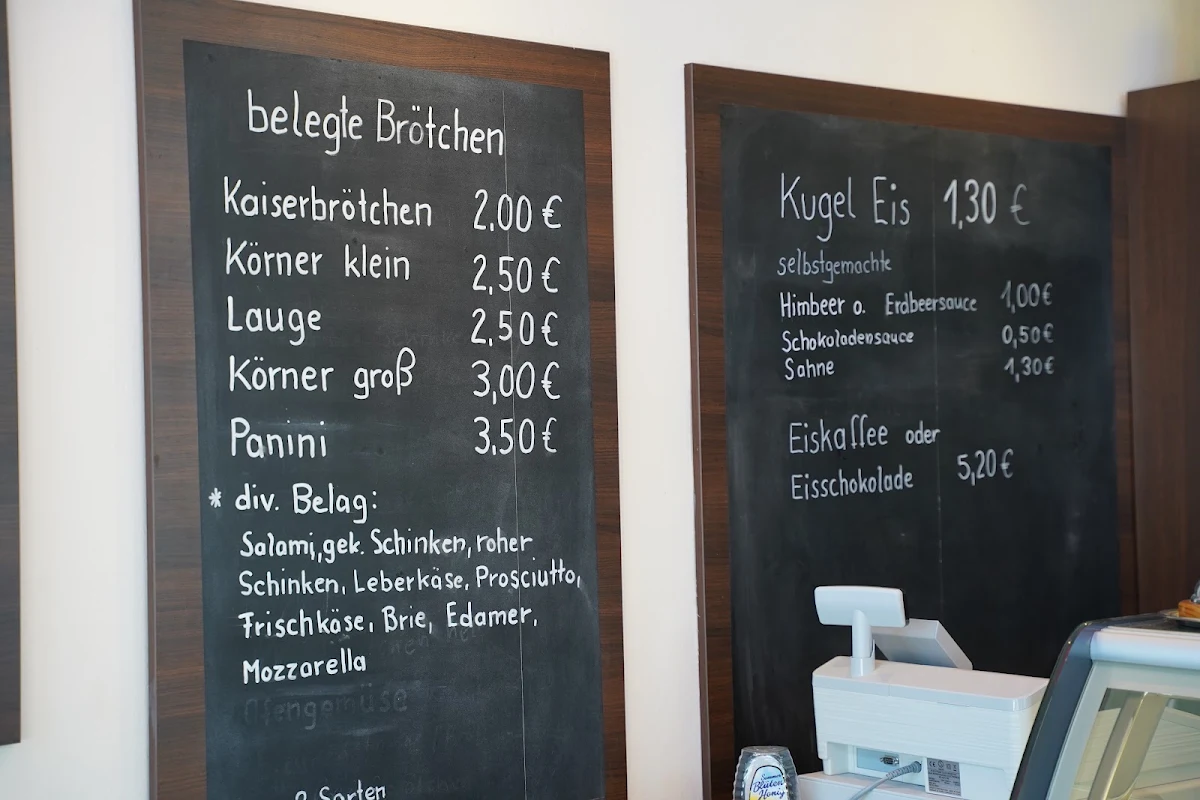 belegte Brötchen
Kaiserbrötchen 2,00 €
Körner klein 2,50 €
Lauge 2,50 €
Körner groß 3,00 €
Panini 3,50 €
* div. Belag:
Salami, gek. Schinken, roher
Schinken, Leberkäse, Prosciutto,
Frischkäse, Brie, Edamer,
Mozzarella
Ofengemüse
Sorten
Kugel Eis 1,30 €
selbstgemachte
Himbeer o. Erdbeersauce 1,00 €
Schokoladensauce 0,50 €
Sahne 1,30 €
Eiskaffee oder
Eisschokolade 5,20 €
Sommer
Blüten
Honig